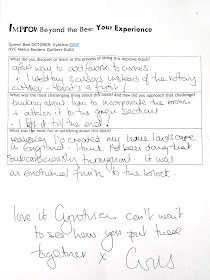 IMPROV Beyond the Bee: Your Experience
Queen Bee OCTOBER: Cynthia
NYC Metro Modern Quilters Guild
What did you discover or learn in the process of doing this improv block?
great way to add fabric to curves.
+ I used my scissors instead of the rotary
cutter - that's a first!
What was the most challenging thing about this block? And how did you approach that challenge?
thinking about how to incorporate the brown
+ attach it to the green sections
- I left it till the end!
What was the most fun or satisfying about this block?
realising I'd created my home landscape
in England - I think I'd been doing that
subconsciously throughout. It was
an emotional finish to the block.
love it Cynthia - can't wait
to see how you put these
together x Chris